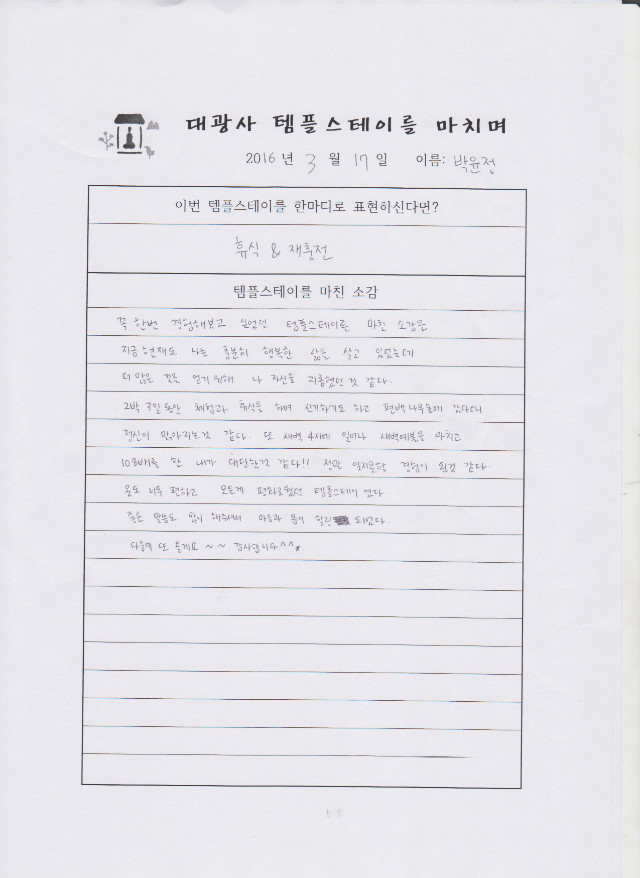 대광사 템플스테이를 마치며
2016 년 3 월 17 일 이름: 박윤정
이번 템플스테이를 한마디로 표현하신다면?
휴식 & 재충전
템플스테이를 마친 소감
꼭 한번 경험해보고 싶었던 템플스테이를 마친 소감은
지금 현재도 나는 충분히 행복한 삶을 살고 있었는데
더 많은 것을 얻기 위해 나 자신을 괴롭혔던 것 같다.
2박 3일동안 체험과 휴식을 하며 신기하기도 하고 편백나무숲에 갔다오니
정신이 맑아지는것 같다. 또 새벽 4시에 일어나 새벽예불을 마치고
108배를 한 내가 대단한것 같다!! 정말 잊지못할 경험이 된것 같다.
옷도 너무 편하고 모든게 평화로웠던 템플스테이 였다
좋은 말씀도 많이 해주셔서 마음과 몸이 힐링 되었다.
다음에 또 올게요 ~ ~ 감사합니다 ^^*